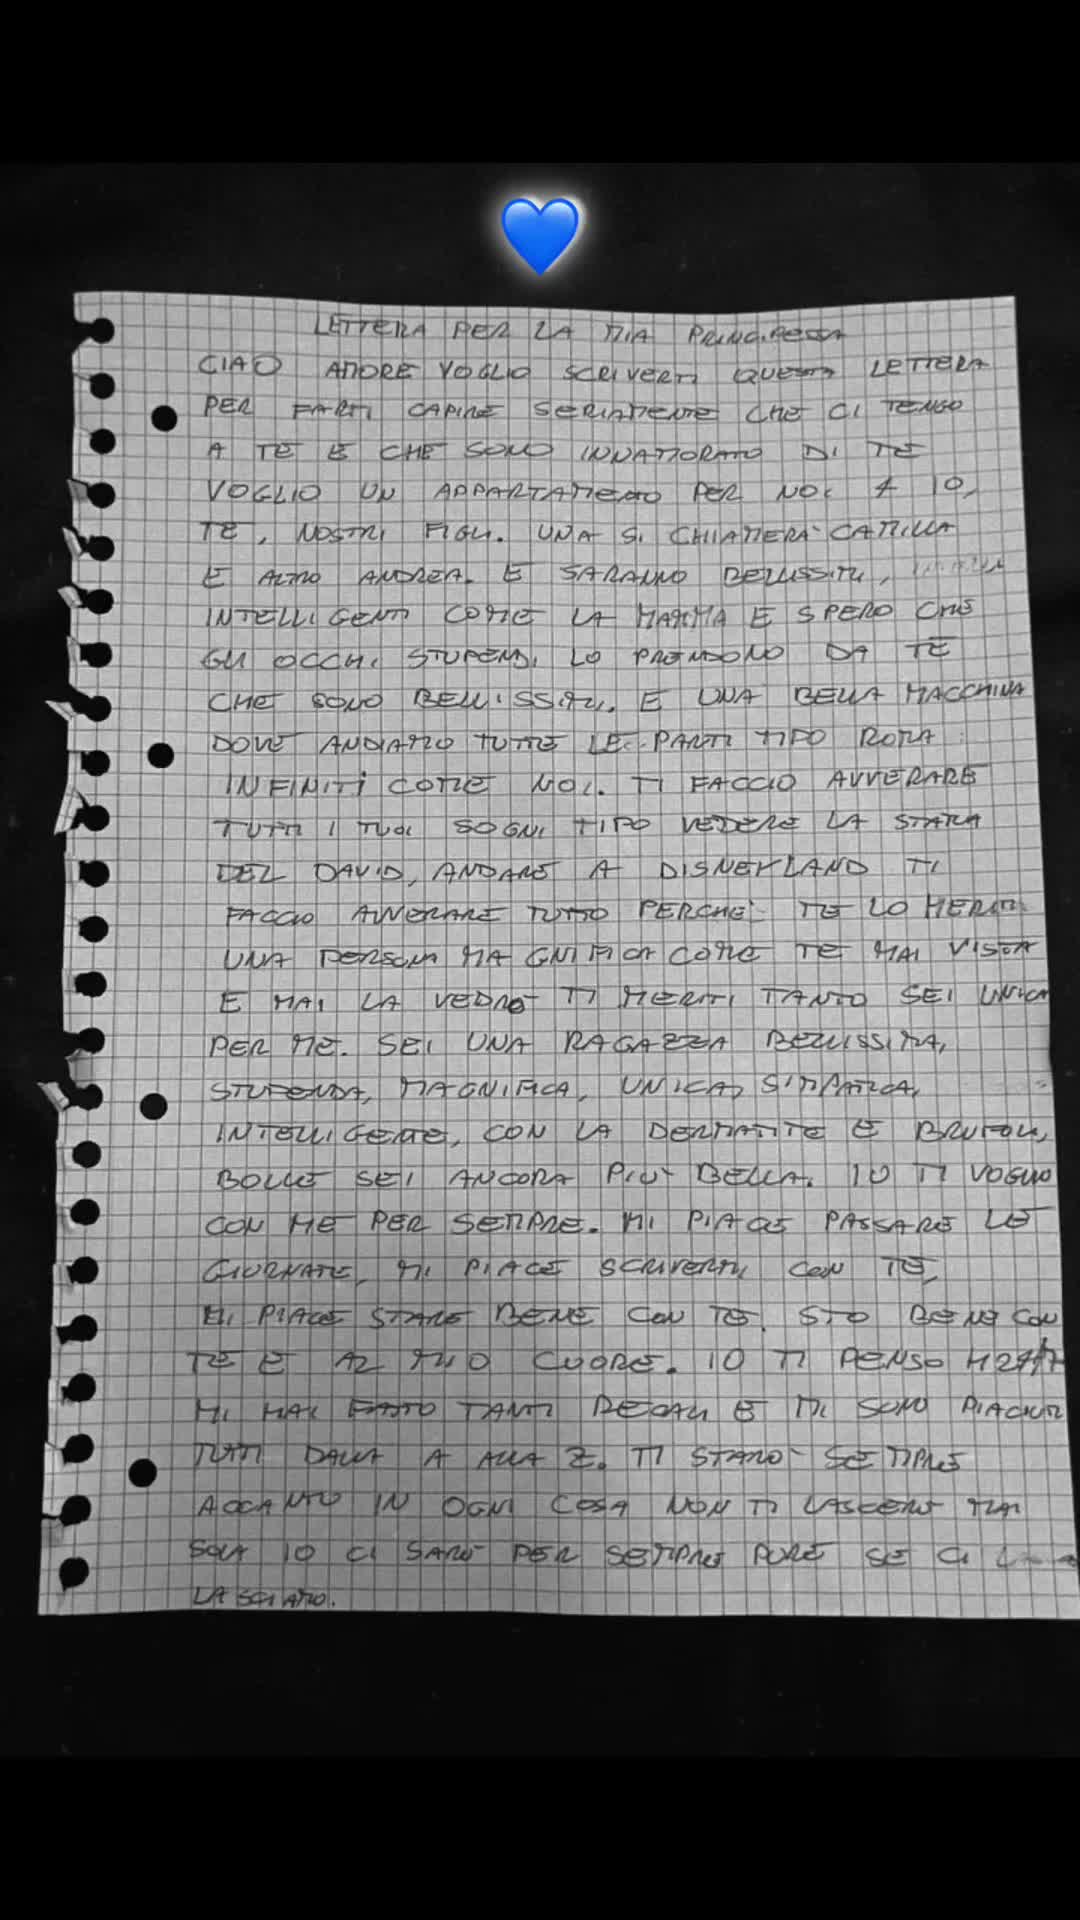 LETTERA PER LA MIA PRINCIPESSA
CIAO AMORE VOGLIO SCRIVERTI QUESTA LETTERA
PER FARTI CAPIRE SERIAMENTE CHE CI TENGO
A TE E CHE SONO INNAMORATO DI TE
VOGLIO UN APPARTAMENTO PER NOI 4 IO,
TE, NOSTRI FIGLI. UNA SI CHIAMERA' CAMILLA
E ALTRO ANDREA. E SARANNO BELLISSIMI,
INTELLIGENTI COME LA MAMMA E SPERO CHE
GLI OCCHI STUPENDI LO PRENDONO DA TE
CHE SONO BELLISSIMI. E UNA BELLA MACCHINA
DOVE ANDIAMO TUTTE LE PARTI TIPO ROMA
INFINITI COME NOI. TI FACCIO AVVERARE
TUTTI I TUOI SOGNI TIPO VEDERE LA STATUA
DEL DAVID, ANDARE A DISNEYLAND TI
FACCIO AVVERARE TUTTO PERCHE' TE LO MERITI
UNA PERSONA MAGNIFICA COME TE MAI VISTA
E MAI LA VEDRO' TI MERITI TANTO SEI UNICA
PER ME. SEI UNA RAGAZZA BELLISSIMA,
STUPENDA, MAGNIFICA, UNICA, SIMPATICA,
INTELLIGENTE, CON LA DERMATITE E BRUFOLI,
BOLLE SEI ANCORA PIU' BELLA. IO TI VOGLIO
CON ME PER SEMPRE. MI PIACE PASSARE LE
GIORNATE, MI PIACE SCRIVERTI, CON TE,
MI PIACE STARE BENE CON TE. STO BENE CON
TE E AL MIO CUORE. IO TI PENSO H24/7
MI HAI FATTO TANTI REGALI E MI SONO PIACIUTI
TUTTI DALLA A ALLA Z. TI STARO' SEMPRE
ACCANTO IN OGNI COSA NON TI LASCERO' MAI
SOLA IO CI SARO' PER SEMPRE PURE SE CI
LASCIAMO.